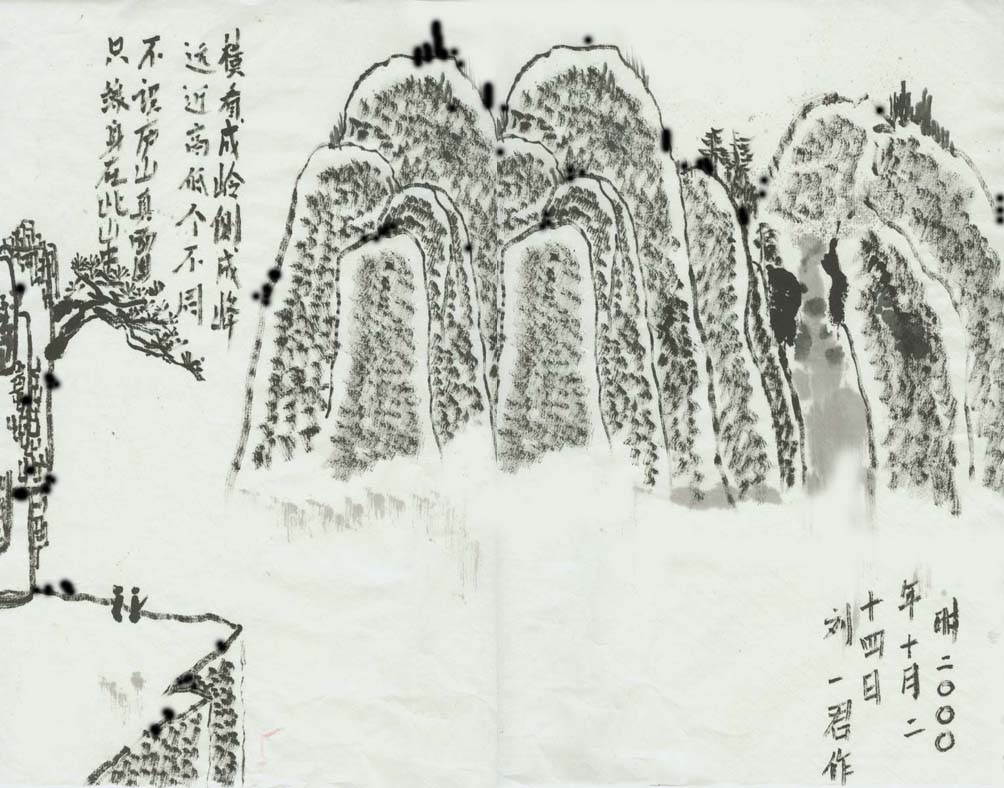 横看成岭侧成峰
远近高低个不同
不识庐山真面
只缘身在此山中
时二〇〇〇
年十月二
十四日
刘一君作